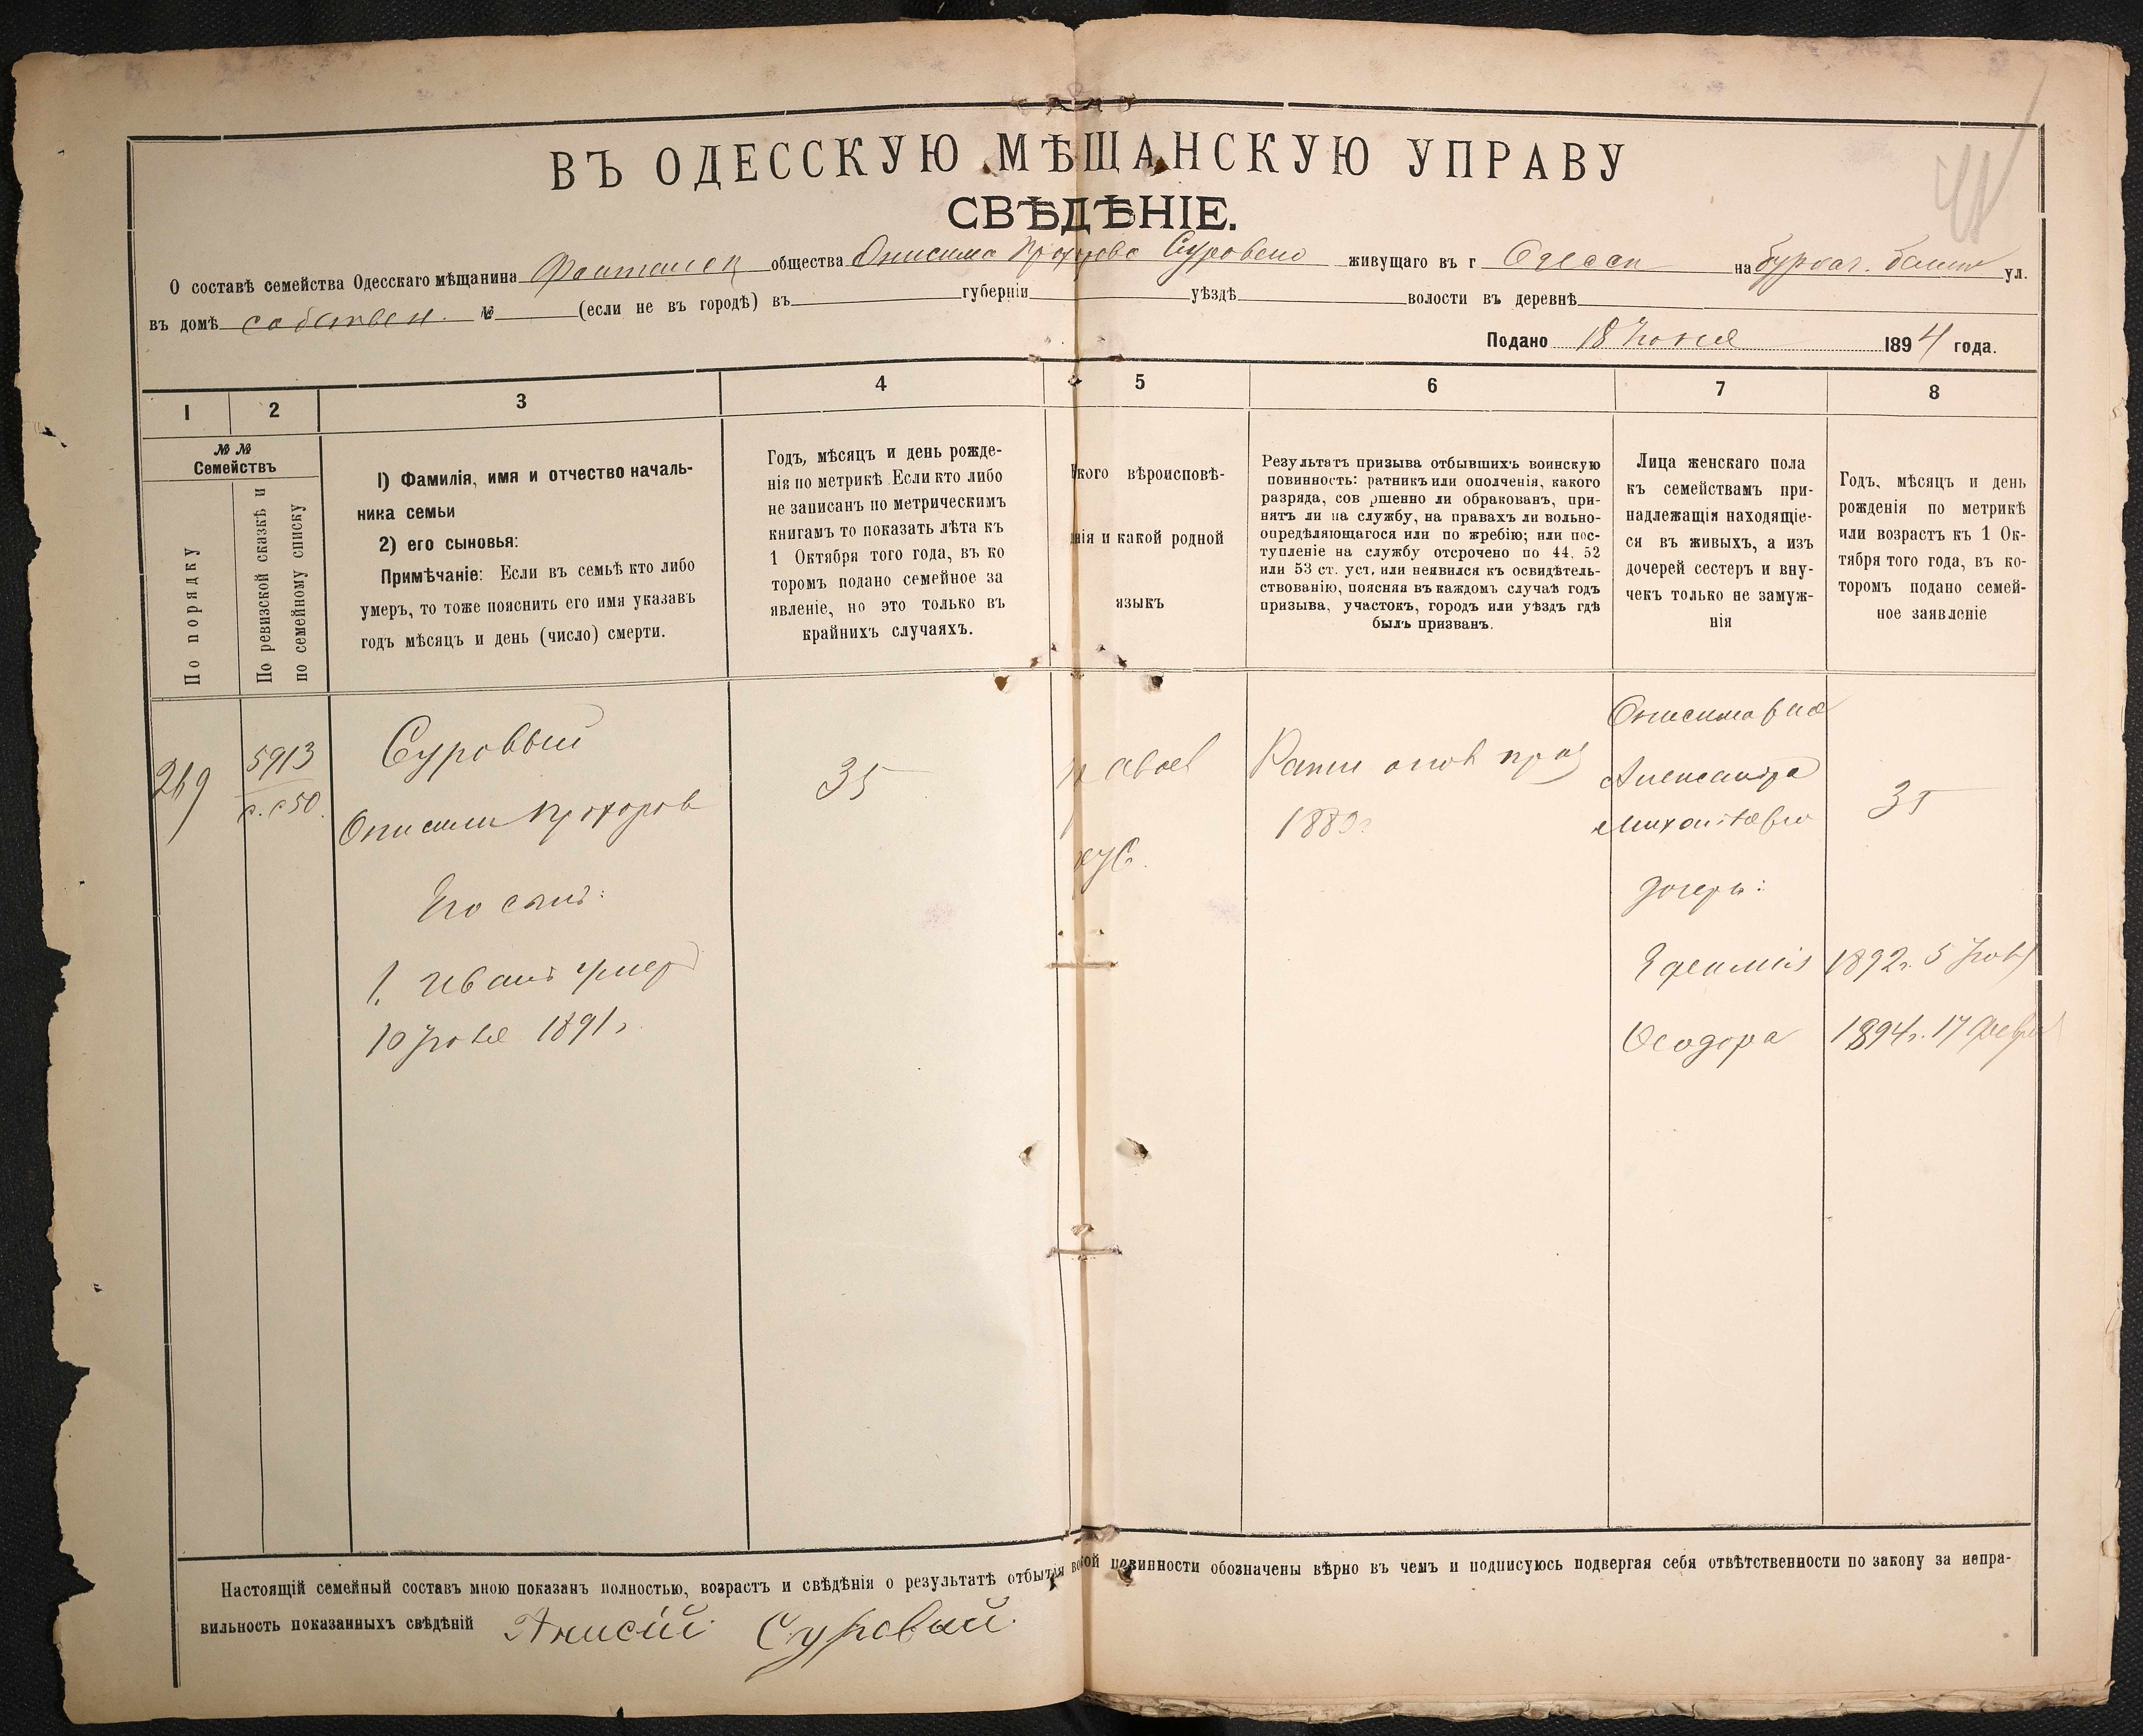 ВЪ ОДЕССКУЮ МѢЩАНСКУЮ УПРАВУ
СВѢДѢНІЕ.
О составѣ семейства Одесскаго мѣщанина общества Онисима Прохорова Сурового живущаго въ г Одессѣ на ул.
въ домѣ собствен. № (если не въ городѣ) въ губерніи уѣздѣ волости въ деревнѣ
Подано 18 Іюня 1894 года.
1 2 3 4 5 6 7 8
№ № Семействъ
По порядку
По ревизской сказкѣ и
по семейному списку
1) Фамилія, имя и отчество началь-
ника семьи
2) его сыновья:
Примѣчаніе: Если въ семьѣ кто либо
умеръ, то тоже пояснить его имя указавъ
годъ мѣсяцъ и день (число) смерти.
Годъ, мѣсяцъ и день рожде-
нія по метрикѣ. Если кто либо
не записанъ по метрическимъ
книгамъ то показать лѣта къ
1 Октября того года, въ ко
торомъ подано семейное за
явленіе, но это только въ
крайнихъ случаяхъ.
кого вѣроисповѣ-
нія и какой родной
языкъ
Результатъ призыва отбывшихъ воинскую
повинность: ратникъ или ополченія, какого
разряда, сов ршенно ли обракованъ, при-
нятъ ли на службу, на правахъ ли вольно-
опредѣляющагося или по жребію; или пос-
тупленіе на службу отсрочено по 44. 52
или 53 ст. уст, или неявился къ освидѣтель-
ствованію, поясняя въ каждомъ случаѣ годъ
призыва, участокъ, городъ или уѣздъ гдѣ
былъ призванъ.
Лица женскаго пола
къ семействамъ при-
надлежащія находящіе-
ся въ живыхъ, а изъ
дочерей сестеръ и вну-
чекъ только не замуж-
нія
Годъ, мѣсяцъ и день
рожденія по метрикѣ
или возрастъ къ 1 Ок-
тября того года, въ ко-
торомъ подано семей-
ное заявленіе
269
5913
с. с 50.
Суровый
Онисим Прохоров
Его сынъ:
1. Иванъ умер
10 Іюля 1891 г
35
правосл
рус.
Ратн опол
Онисимовна
Александра
Михайлова
35
дочерь:
Ефимія 1892 г. 5
Ѳеодора 1894 г. 17 Февр
Настоящій семейный составъ мною показанъ полностью, возрастъ и свѣдѣнія о результатѣ отбытія во ой повинности обозначены вѣрно въ чемъ и подписуюсь подвергая себя отвѣтственности по закону за непра-
вильность показанныхъ свѣдѣній Анисій Суровый